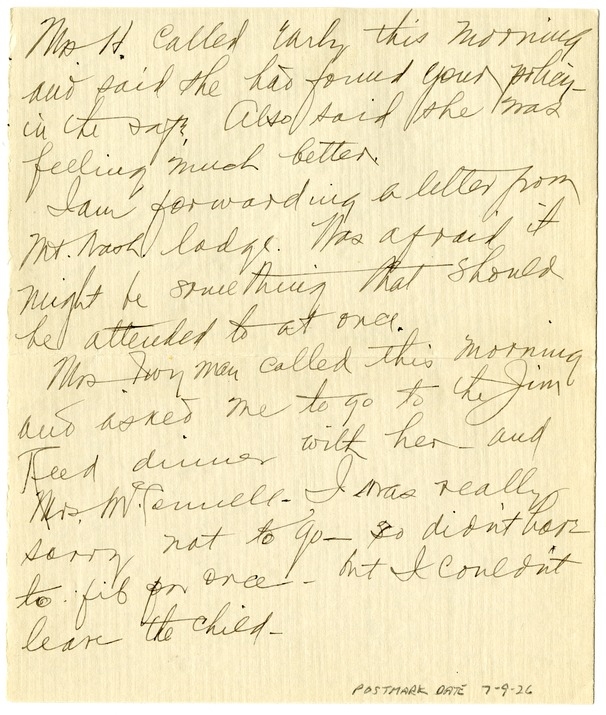 Mrs H called early this morning
and said she had found your policy
in the safe. Also said she was
feeling much better.
I am forwarding a letter from
Mt. Wash. lodge. Was afraid it
might be something that should
be attended to at once.
Mrs called this morning
and asked me to go to the Jim
Reed dinner with her - and
Mrs. McConnell - I was really
sorry not to go - so didn't have
to fib for once - but I couldn't
leave the child -
POSTMARK DATE 7-9-26